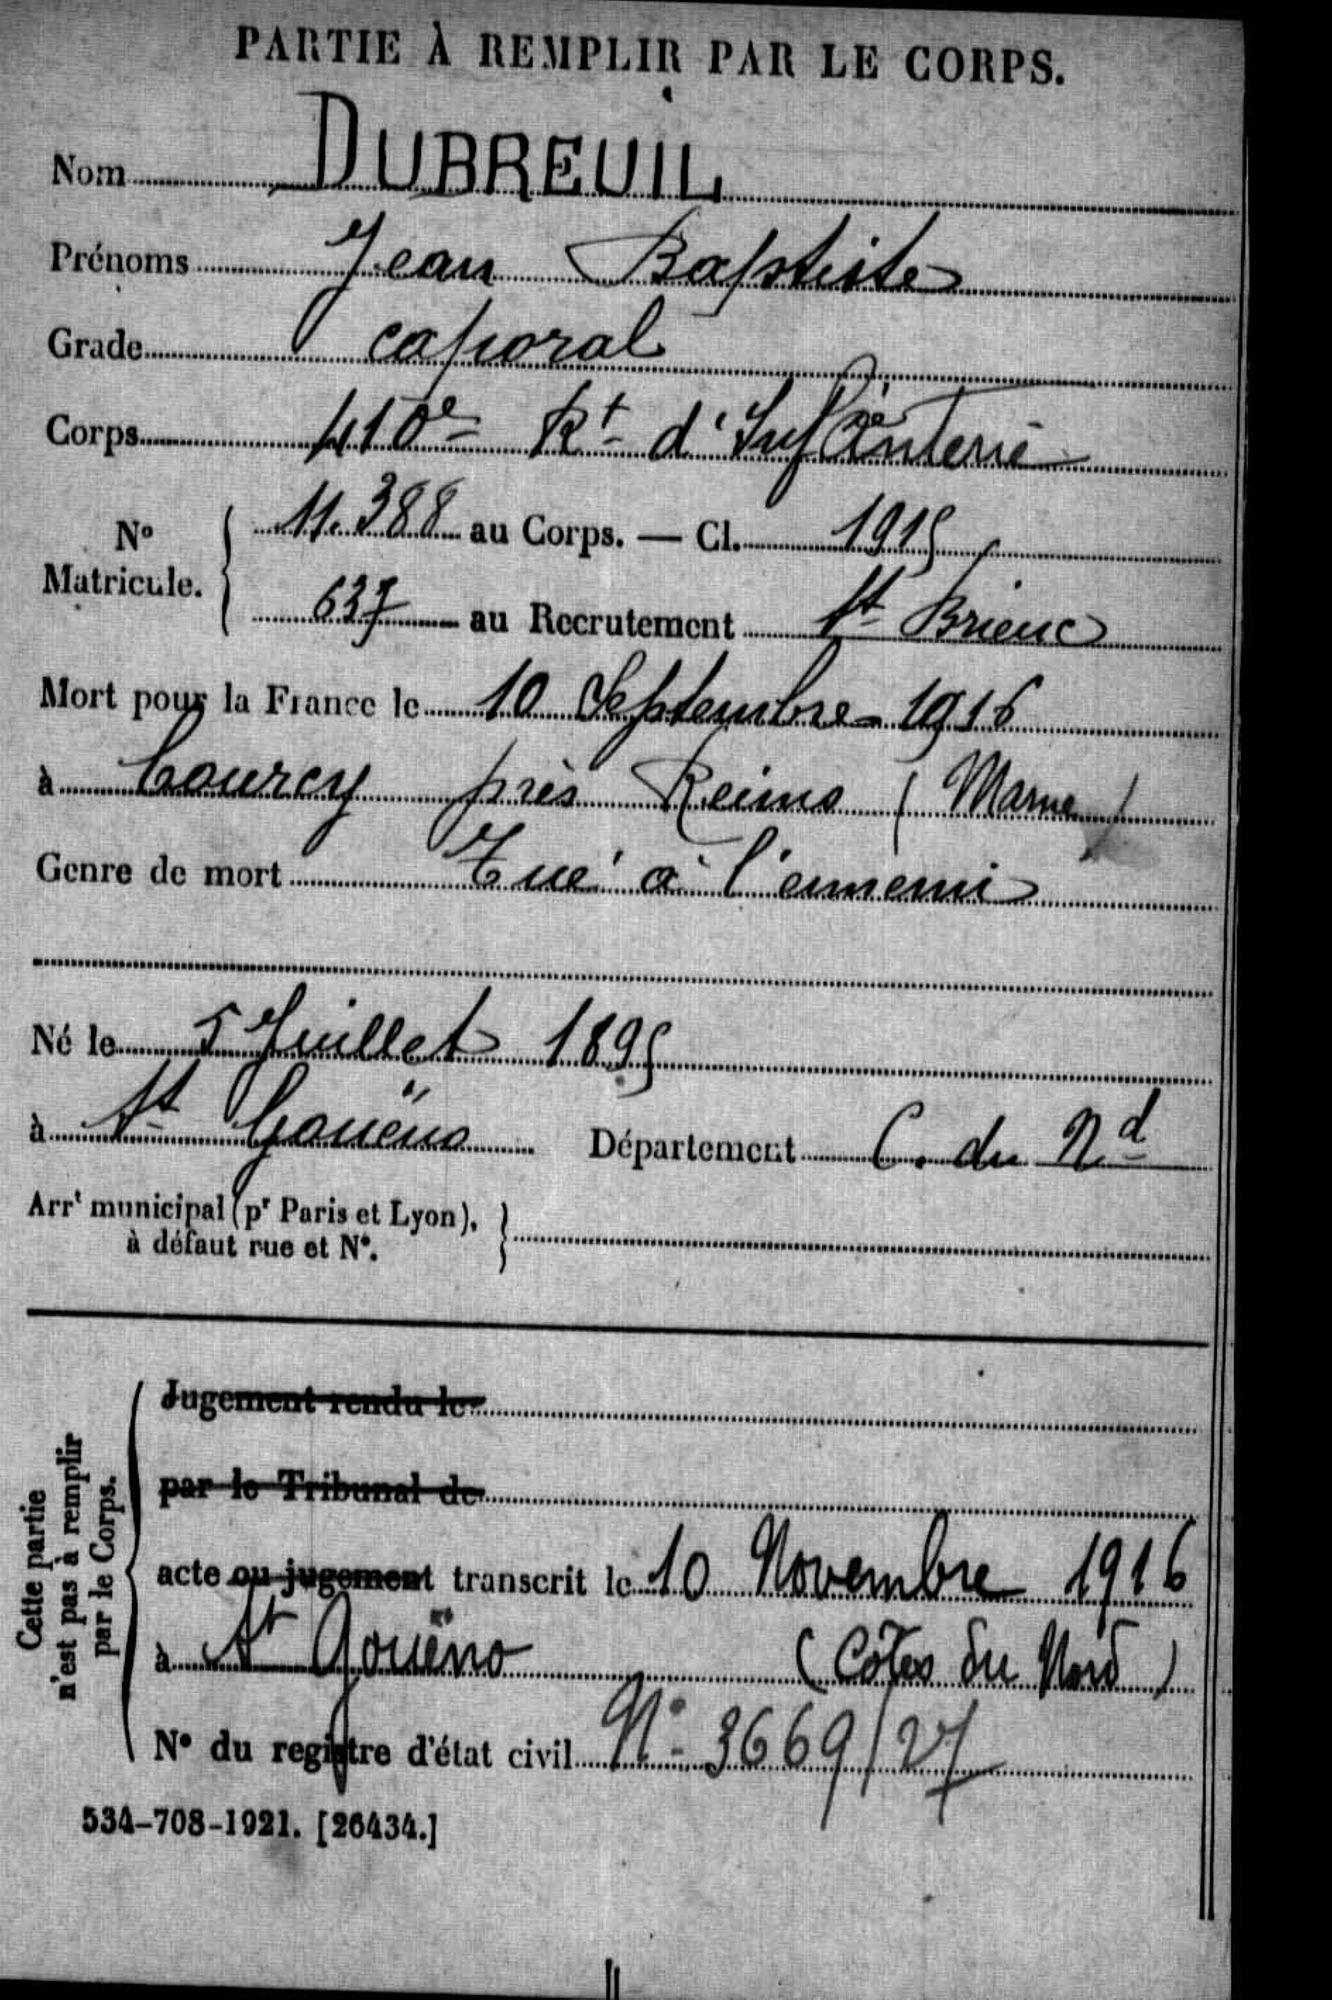 PARTIE À REMPLIR PAR LE CORPS.
Nom DUBREUIL
Prénoms Jean Baptiste
Grade caporal
Corps 410e Rt d'Infanterie
No Matricule. 11.388 au Corps. — Cl. 1915
637 au Recrutement St Brieuc
Mort pour la France le 10 Septembre 1916
à Courcy près Reims (Marne)
Genre de mort Tué à l'ennemi
Né le 5 Juillet 1895
à St Gouëno Département C. du Nd
Arrt municipal (pr Paris et Lyon),
à défaut rue et No.
Cette partie
n'est pas à remplir
par le Corps.
Jugement rendu le
par le Tribunal de
acte ou jugement transcrit le 10 Novembre 1916
à St Gouëno (Côtes du Nord)
No du registre d'état civil No 3669/27
534-708-1921. [26434.]